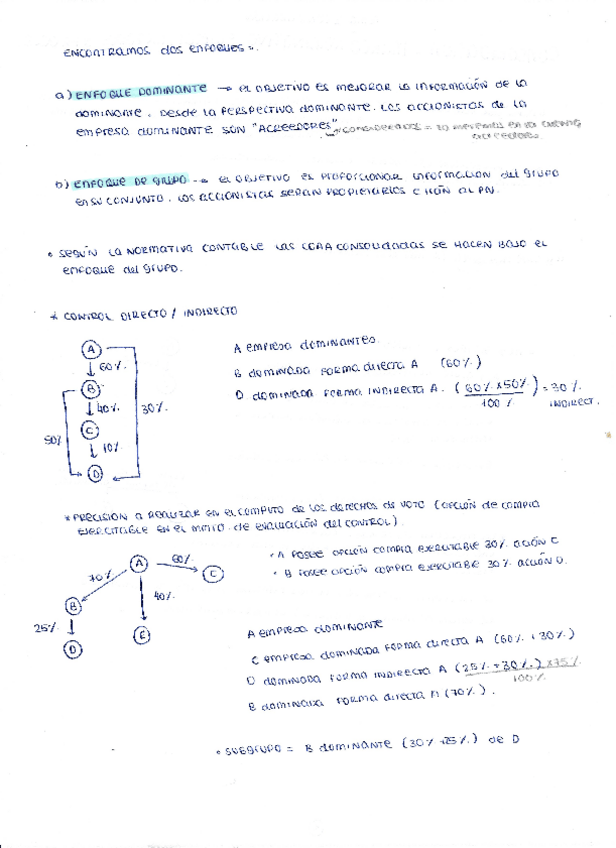 ENCONTRAMOS dos ENFOQUES:
a) ENFOQUE DOMINANTE → EL OBJETIVO ES MEJORAR LA INFORMACIÓN DE LA
DOMINANTE. DESDE LA PERSPECTIVA DOMINANTE. LOS ACCIONISTAS DE LA
EMPRESA DOMINANTE SON "ACREEDORES"
b) ENFOQUE DE GRUPO → EL OBJETIVO ES PROPORCIONAR INFORMACIÓN del GRUPO
EN SU CONJUNTO. LOS ACCIONISTAS SERÁN PROPIETARIOS
• SEGÚN LA NORMATIVA CONTABLE LAS CCAA CONSOLIDADAS SE HACEN BAJO EL
ENFOQUE del GRUPO.
* CONTROL DIRECTO / INDIRECTO
A
60%
B
40%
C
10%
D
50%
30%
A EMPRESA dominantes.
B dominada FORMA directa A (60%)
D dominada FORMA INDIRECTA A. (60% x 50% / 100%) = 30%
INDIRECT.
* PRECISION A REALIZAR EN EL COMPUTO de LOS derechos de VOTO (OPCIÓN de COMPRA
EJERCITABLE EN EL de EVALUACIÓN del CONTROL).
A
60%
C
70%
B
40%
E
25%
D
• A POSEE OPCIÓN COMPRA EXERCITABLE 30% ACCIÓN C
• B POSEE OPCIÓN COMPRA EXERCITABLE 30% ACCIÓN D.
A EMPRESA dominante
C EMPRESA dominada FORMA directa A (60% + 30%)
D dominada FORMA INDIRECTA A (25% + 30%) x 75%
100%
B dominada FORMA directa A (70%).
• SUBGRUPO = B dominante (30% + 25%) de D